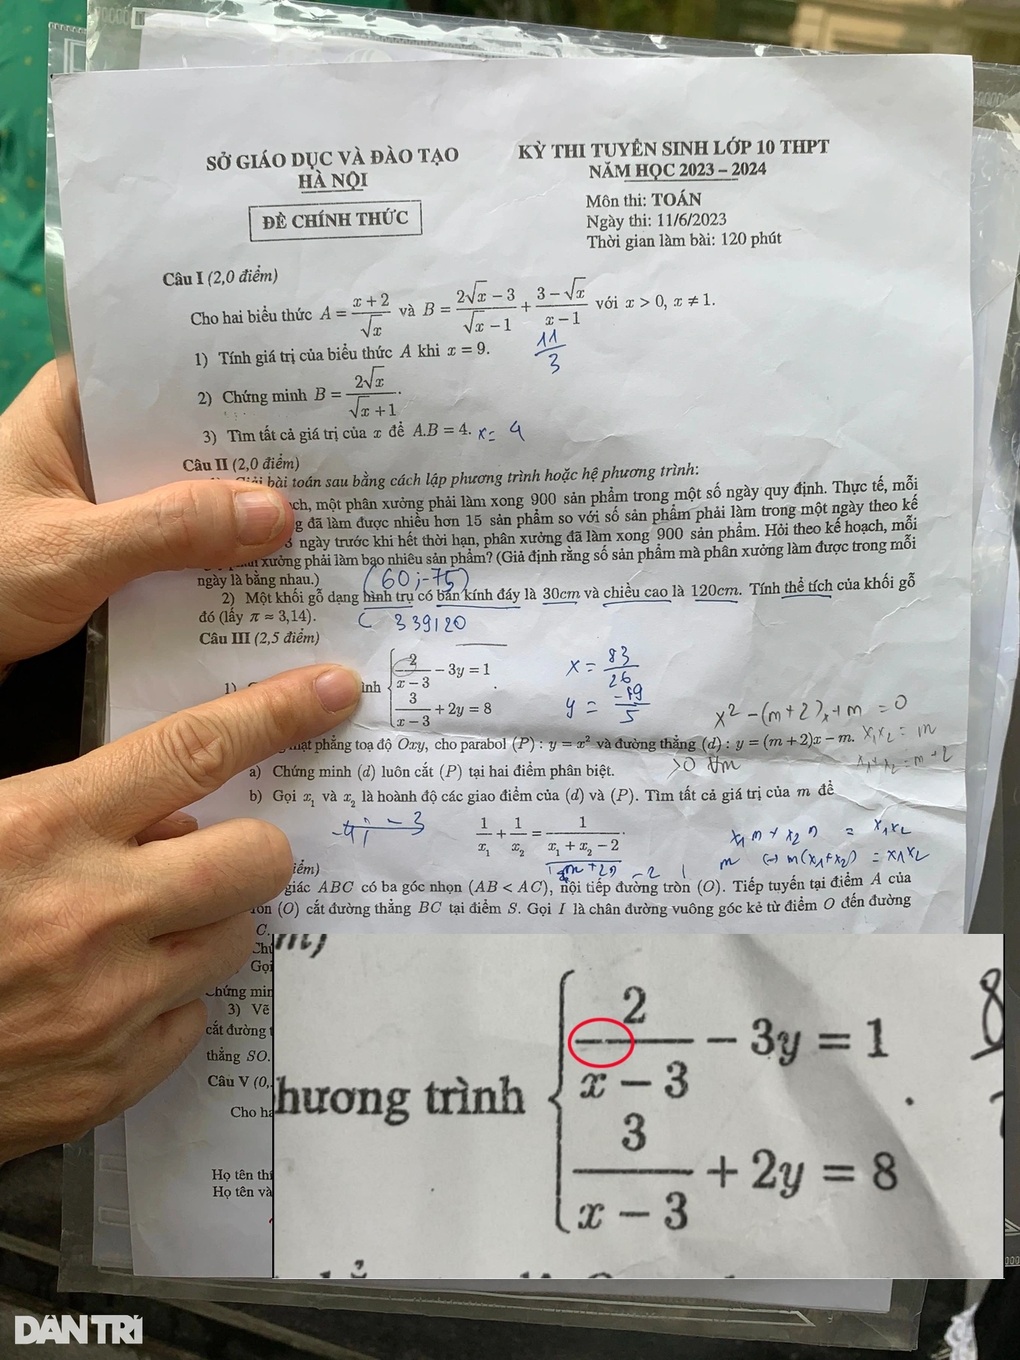 SỞ GIÁO DỤC VÀ ĐÀO TẠO
HÀ NỘI
ĐỀ CHÍNH THỨC
KỲ THI TUYỂN SINH LỚP 10 THPT
NĂM HỌC 2023 – 2024
Môn thi: TOÁN
Ngày thi: 11/6/2023
Thời gian làm bài: 120 phút
Câu I (2,0 điểm)
Cho hai biểu thức A = (x + 2)/√x và B = (2√x − 3)/(√x − 1) + (3 − √x)/(x − 1) với x > 0, x ≠ 1.
1) Tính giá trị của biểu thức A khi x = 9. 11/3
2) Chứng minh B = 2√x/(√x + 1).
3) Tìm tất cả giá trị của x để A.B = 4. x = 4
Câu II (2,0 điểm)
bài toán sau bằng cách lập phương trình hoặc hệ phương trình:
một phân xưởng phải làm xong 900 sản phẩm trong một số ngày quy định. Thực tế, mỗi
đã làm được nhiều hơn 15 sản phẩm so với số sản phẩm phải làm trong một ngày theo kế
3 ngày trước khi hết thời hạn, phân xưởng đã làm xong 900 sản phẩm. Hỏi theo kế hoạch, mỗi
xưởng phải làm bao nhiêu sản phẩm? (Giả định rằng số sản phẩm mà phân xưởng làm được trong mỗi
ngày là bằng nhau.) (60; -75)
2) Một khối gỗ dạng hình trụ có bán kính đáy là 30cm và chiều cao là 120cm. Tính thể tích của khối gỗ
đó (lấy π ≈ 3,14). 339120
Câu III (2,5 điểm)
1)
2/(x − 3) − 3y = 1
3/(x − 3) + 2y = 8
x = 83/26
y = -19/5
x² − (m+2)x + m = 0
mặt phẳng toạ độ Oxy, cho parabol (P) : y = x² và đường thẳng (d) : y = (m + 2)x − m. x₁x₂ = m
a) Chứng minh (d) luôn cắt (P) tại hai điểm phân biệt. >0 ∀m
b) Gọi x₁ và x₂ là hoành độ các giao điểm của (d) và (P). Tìm tất cả giá trị của m để
1/x₁ + 1/x₂ = 1/(x₁ + x₂ − 2).
điểm)
giác ABC có ba góc nhọn (AB < AC), nội tiếp đường tròn (O). Tiếp tuyến tại điểm A của
(O) cắt đường thẳng BC tại điểm S. Gọi I là chân đường vuông góc kẻ từ điểm O đến đường
C.
Gọi
Chứng min
3) Vẽ
cắt đường t
thẳng SO.
Câu V (0,
Cho ha
Họ tên thí
Họ tên và
hương trình
2/(x − 3) − 3y = 1
3/(x − 3) + 2y = 8
.
DÂN TRÍ